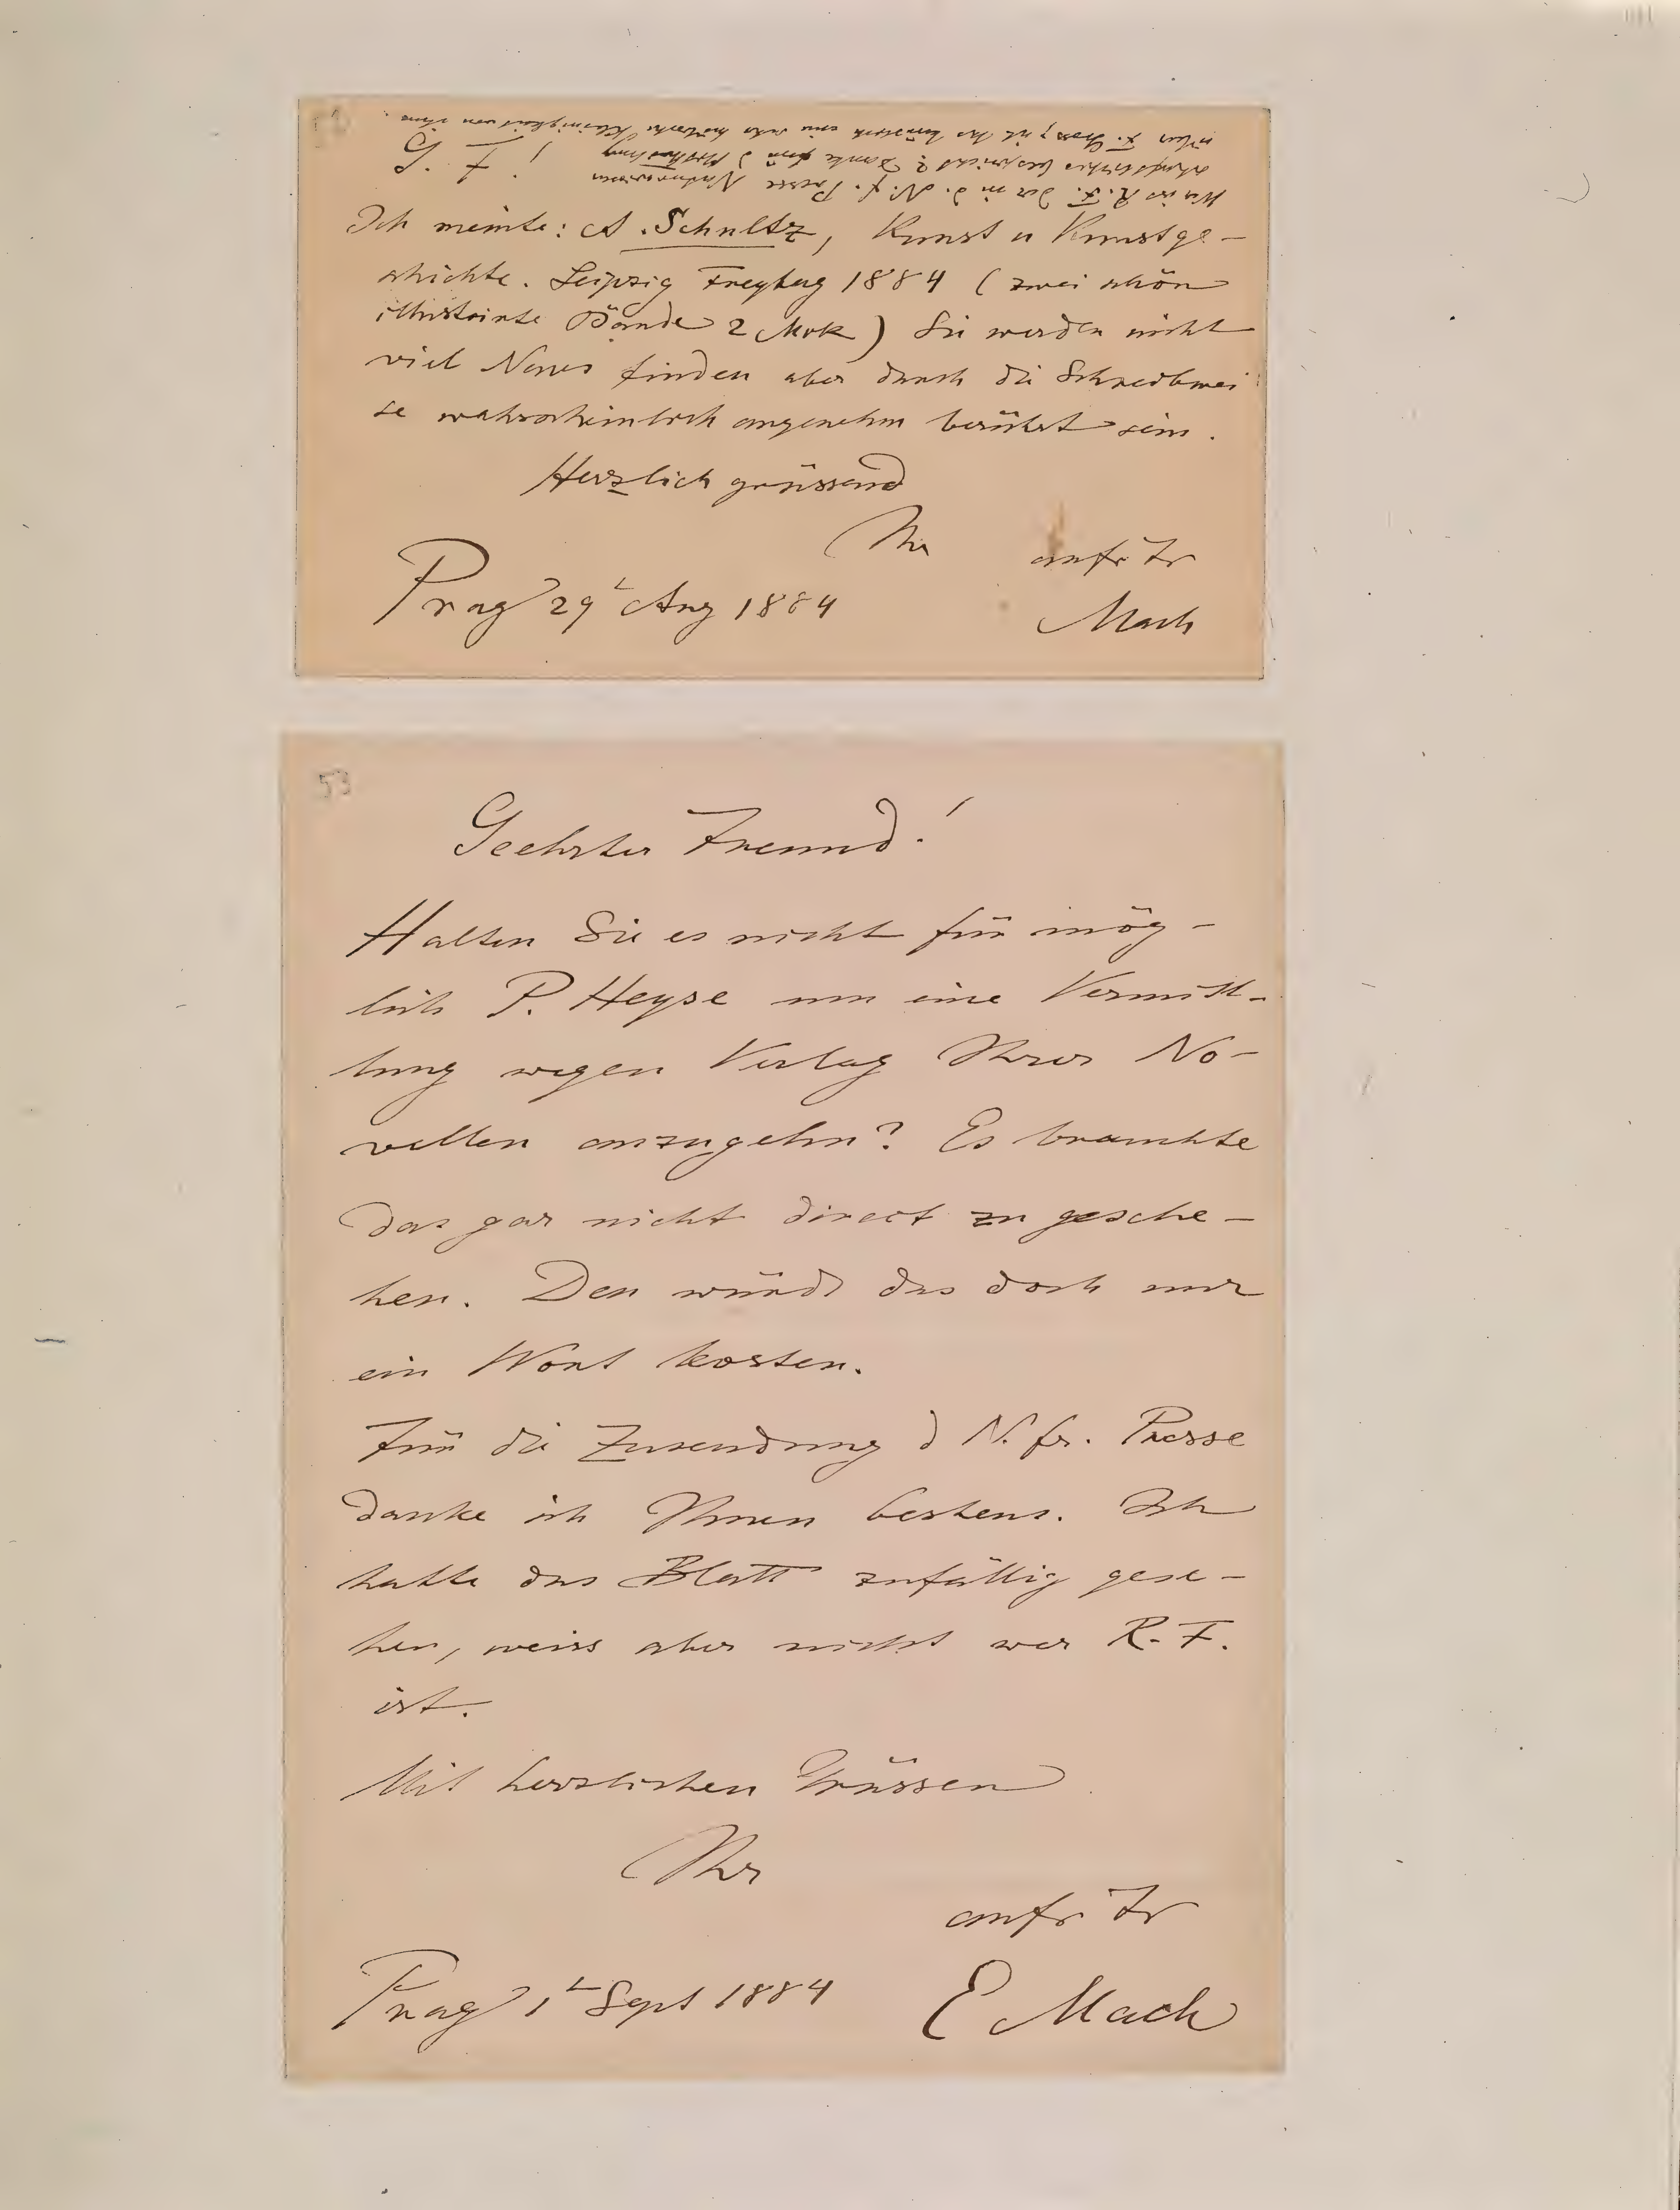 Wer ist R. F. der in d. N. f. Presse Naturwissen
schaftliches bespricht? Danke für d
über F. Gross
! F. P.
Ich meinte: A. Schultz, Kunst u Kunstge-
schichte. Leipzig Freytag 1884 (zwei schön
illustrirte Bände 2 Mrk) Sie werden nicht
viel Neues finden aber durch die Schreibwei
se wahrscheinlich angenehm berührt sein.
Herzlich grüssend
Ihr
aufr Fr
Prag 29t Aug 1884
Mach
53
Geehrter Freund!
Halten Sie es nicht für mög-
lich P. Heyse um eine Vermitt-
lung wegen Verlag Ihrer No-
vellen anzugehn? Es brauchte
das gar nicht direct zu gesche-
hen. Den würde das doch nur
ein Wort kosten.
Für die Zusendung d N. fr. Presse
danke ich Ihnen bestens. Ich
hatte das Blatt zufällig gese-
hen, weiss aber nicht wer R. F.
ist.
Mit herzlichen Grüssen
Ihr
aufr Fr
Prag 1t Sept 1884
E Mach